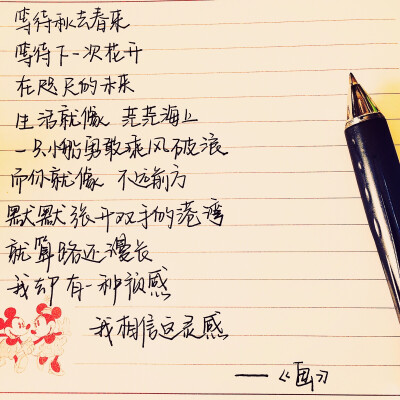 等待秋去春来
等待下一次花开
在咫尺的未来
生活就像 茫茫海上
一只小船勇敢乘风破浪
而你就像 不远前方
默默张开双手的港湾
就算路还漫长
我却有一种预感
我相信这灵感
——《画》